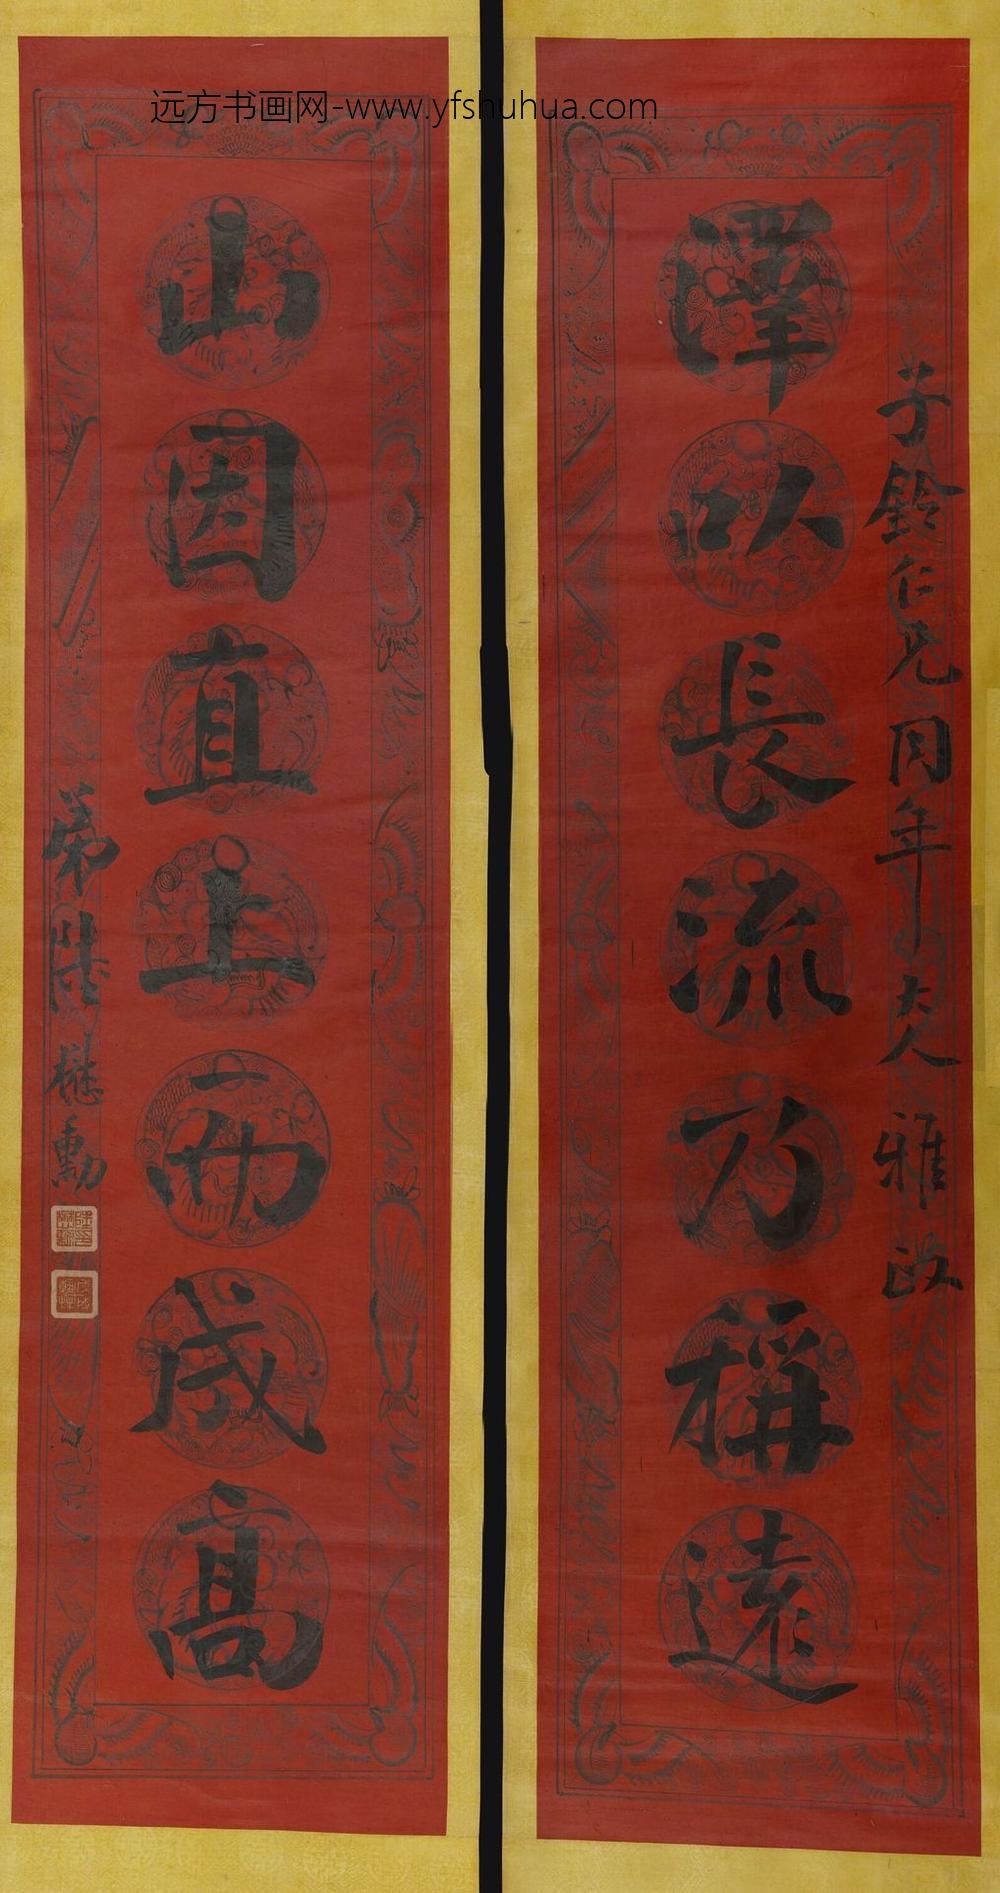 远方书画网-www.yfshuhua.com
子鈴仁兄同年大人雅政
澤以長流乃稱遠
山因直上而成高
弟陸懋勳